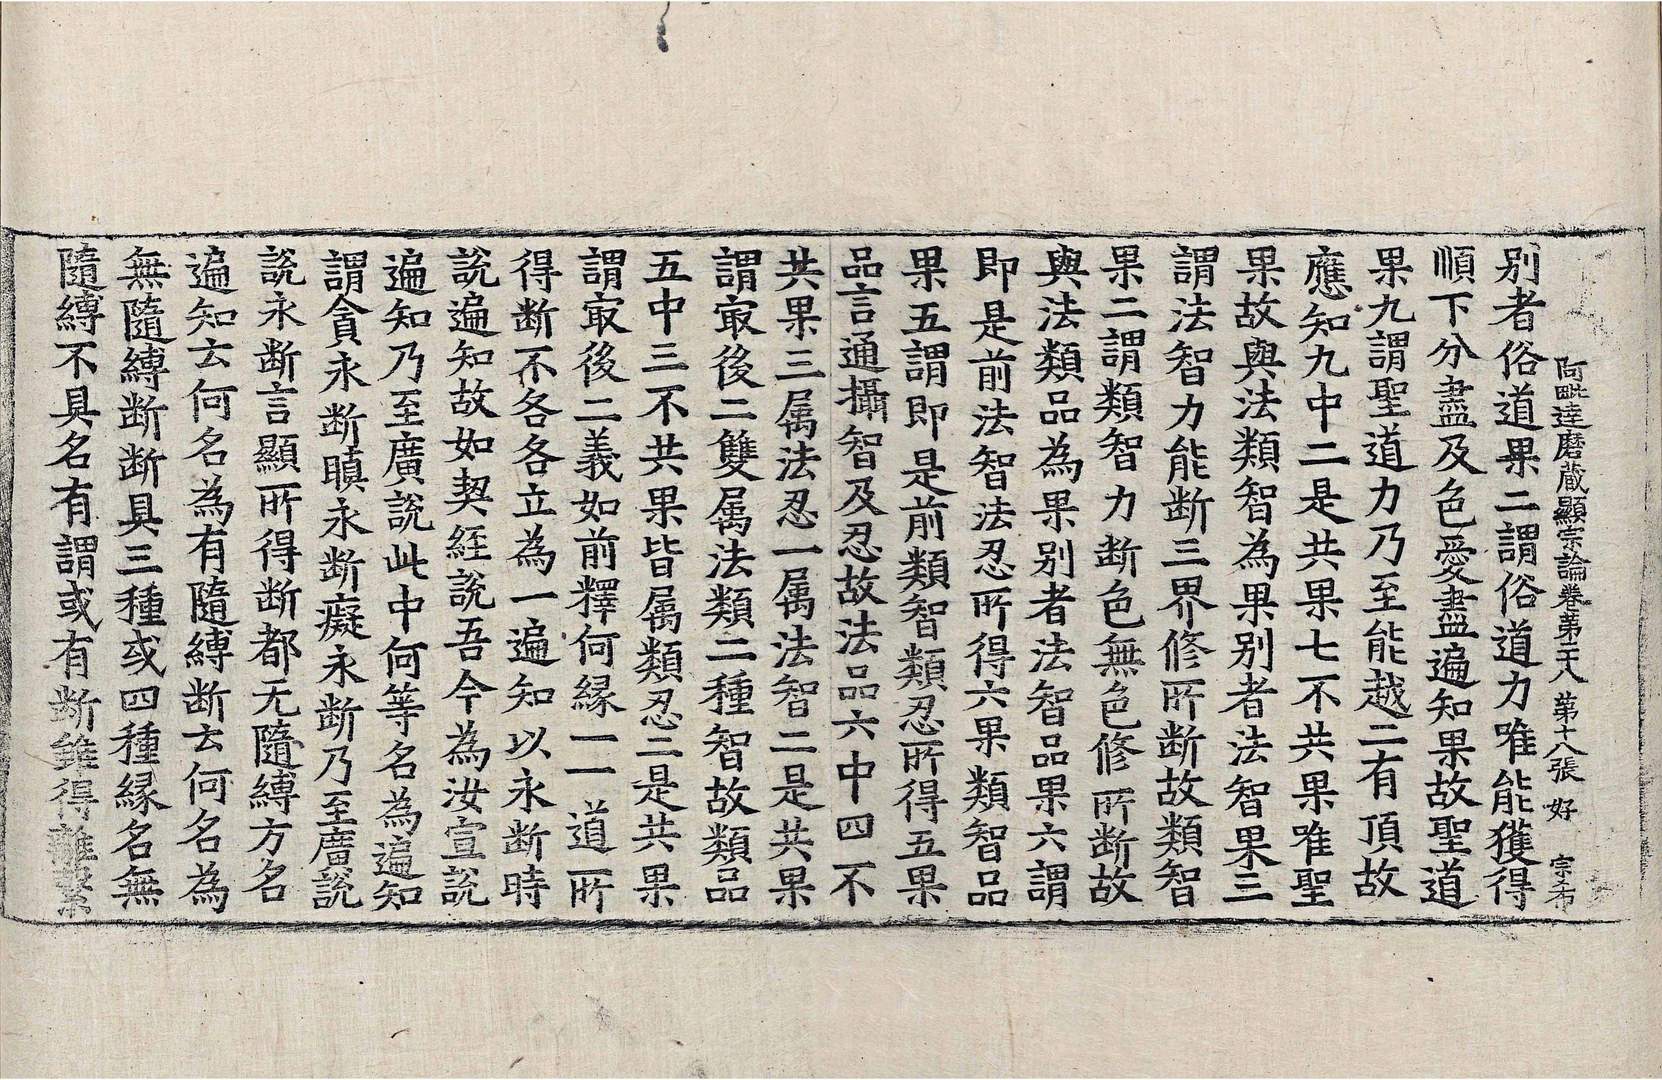 阿毗達磨蔵顯宗論卷苐二十八　苐十八張　好　宗希
别者俗道果二謂俗道力唯能獲得
順下分盡及色愛盡遍知果故聖道
果九謂聖道力乃至能越二有頂故
應知九中二是共果七不共果唯聖
果故與法類智為果别者法智果三
謂法智力能断三界修所断故類智
果二謂類智力断色無色修所断故
與法類品為果别者法智品果六謂
即是前法智法忍所得六果類智品
果五謂即是前類智類忍所得五果
品言通攝智及忍故法品六中四不
共果三属法忍一属法智二是共果
謂㝡後二雙属法類二種智故類品
五中三不共果皆属類忍二是共果
謂㝡後二義如前釋何縁一一道所
得断不各各立為一遍知以永断時
說遍知故如契経說吾今為汝宣說
遍知乃至廣說此中何等名為遍知
謂貪永断瞋永断癡永断乃至廣說
說永断言顯所得断都无隨縛方名
遍知云何名為有隨縛断云何名為
無隨縛断断具三種或四種縁名無
隨縛不具名有謂或有断雖得離繫